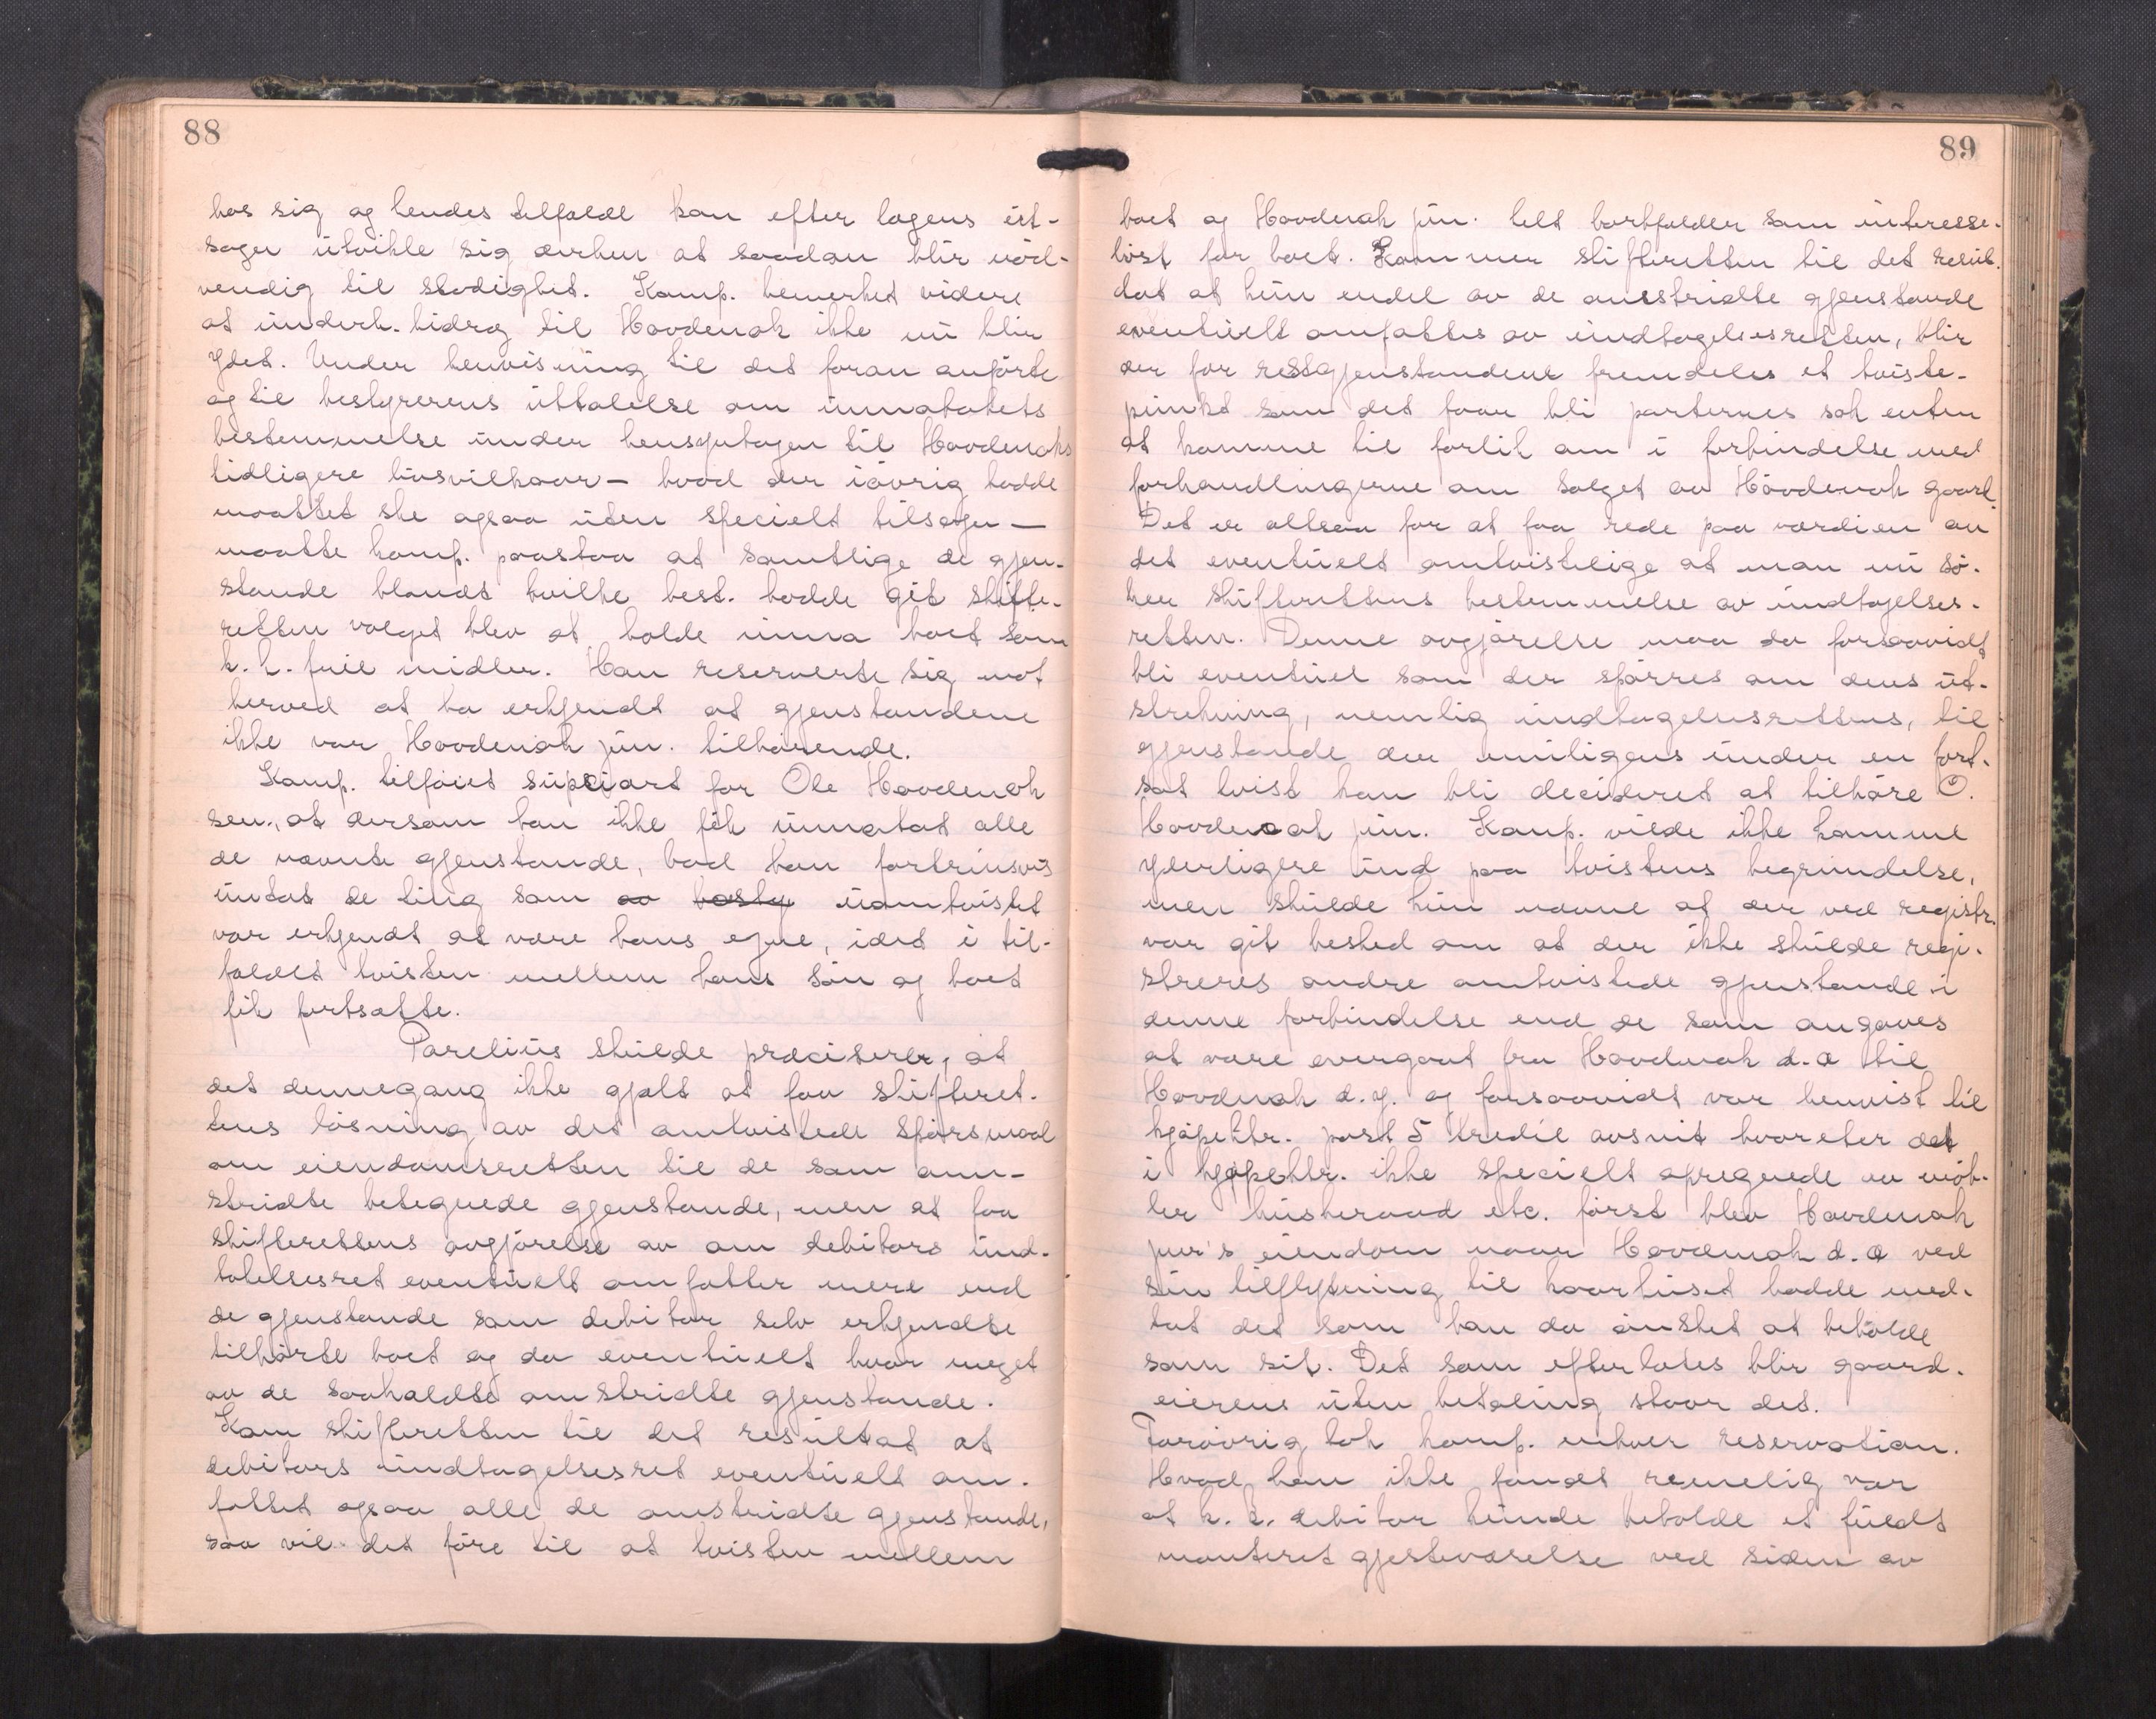 88
hos sig og hendes tilfælde kan efter lægens ut-
sagn utvikle sig derhen at saadan blir nød-
vendig til stadighet. Komp. bemerket videre
at underh. bidrag til Hovdenak ikke nu blir
ydet. Under henvisning til det foran anførte
og til bestyrerens uttalelse om unnatakets
bestemmelse under hensyntagen til Hovdenaks
tidligere livsvilkaar – hvad der iøvrig hadde
maattet ske ogsaa uten specielt tilsagn –
maatte komp. paastaa at samtlige de gjen-
stande blandt hvilke best. hadde git skifte-
retten valget blev at holde unna boet som
k. k. frie midler. Han reserverte sig mot
herved at ha erkjendt at gjenstandene
ikke var Hovdenak jun. tilhørende.
Komp. tilføiet supsiært for Ole Hovdenak
sen., at dersom han ikke fik unnatat alle
de nævnte gjenstande, bad han fortrinsvis
undtat de ting som av bosty uomtvistet
var erkjendt at være hans egne, idet i til-
fældet tvisten mellem hans søn og boet
fik fortsætte.
Parelius skulde præcisere, at
det dennegang ikke gjalt at faa skifteret-
tens løsning av det omtvistede spørsmaal
om eiendomsretten til de som om-
stridte betegnede gjenstande, men at faa
skifterettens avgjørelse av om debitors und-
takelsesret eventuelt omfatter mere end
de gjenstande som debitor selv erkjendte
tilhørte boet og da eventuelt hvor meget
av de saakaldte omstridte gjenstande.
Kom skifteretten til det resultat at
debitors undtagelsesret eventuelt om-
fattet ogsaa alle de omstridte gjenstande,
saa vil det føre til at tvisten mellem
89
boet og Hovdenak jun. helt bortfalder som interesse-
løst for boet. Kommer skifteretten til det resul-
tat at kun endel av de omstridte gjenstande
eventuelt omfattes av undtagelsesretten, blir
der for restgjenstandene fremdeles et tviste-
punkt som det faar bli parternes sak enten
at komme til forlik om i forbindelse med
forhandlingerne om salget av Hovdenak gaard.
Det er altsaa for at faa rede paa værdien av
det eventuelt omtvistelige at man nu sø-
ker skifterettens bestemmelse av undtagelses-
retten. Denne avgjørelse maa da forsaavidt
bli eventuel som der spørres om dens ut-
strekning, nemlig undtagelsesrettens, til
gjenstande der muligens under en fort-
sat tvist kan bli decideret at tilhøre O.
Hovdenak jun. Komp. vilde ikke komme
yderligere ind paa tvistens begrundelse,
men skulde kun nævne at der ved registr.
var git beskjed om at der ikke skulde regi-
streres andre omtvistede gjenstande i
denne forbindelse end de som angaves
at være overgaat fra Hovdenak d.æ til
Hovdenak d.y. og forsaavidt var henvist til
kjøpektr. post 5 tredie avsnit hvorefter det
i kjøpektr. ikke specielt opregnede av møb-
ler husteraad etc. først blev Hovdenak
jun's eiendom naar Hovdenak d.æ ved
sin tilflytning til kaarhuset hadde med-
tat det som han da ønsket at beholde
som sit. Det som efterlates blir gaard-
eierens uten betaling staar det.
Forøvrig tok komp. enhver reservation.
Hvad han ikke fandt rimelig var
at k. k. debitor kunde beholde et fuldt
monteret gjesteværelse ved siden av